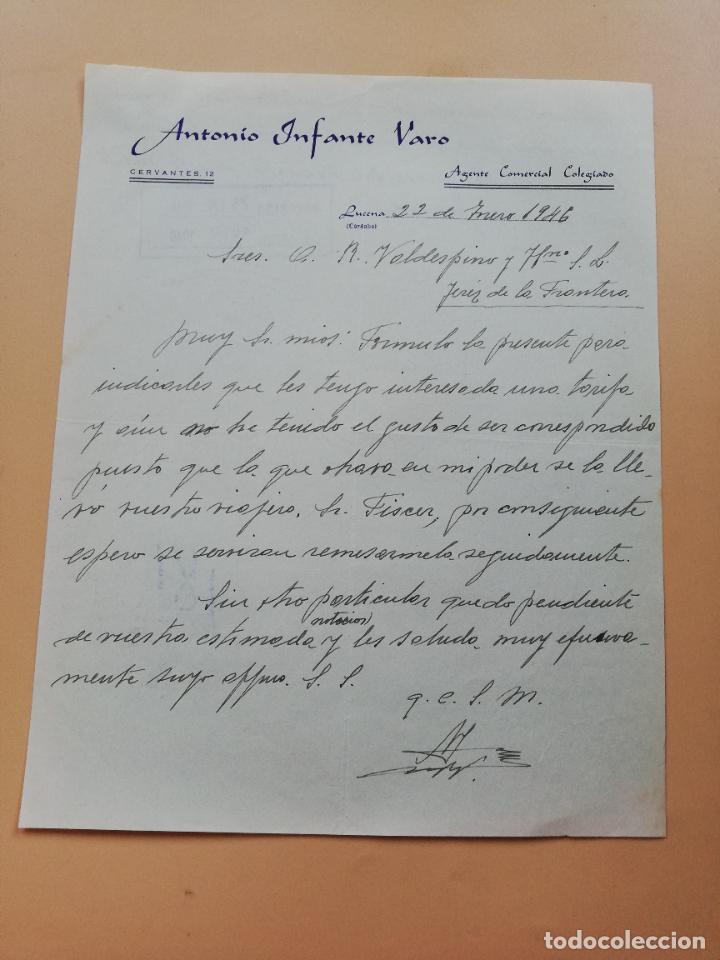 Antonio Infante Varo
CERVANTES, 12
Agente Comercial Colegiado
Lucena 22 de Enero 1946
(Córdoba)
Sres. A. R. Valdespino y Hno S. L.
Jeréz de la Frontera.
Muy Sr. mios: Formulo la presente para
indicarles que les tengo interesada una tarifa
y aún no he tenido el gusto de ser correspondido
puesto que la que obrava en mi poder se la lle-
vó vuestro viajero, Sr. Fiscer, por consiguiente
espero se serviran remesarmela seguidamente.
Sin otro particular quedo pendiente
noticias
de vuestra estimada y les saluda muy efusiva-
mente suyo affmo. S. S.
q. e. S. M.
todocoleccion
todocoleccion.net